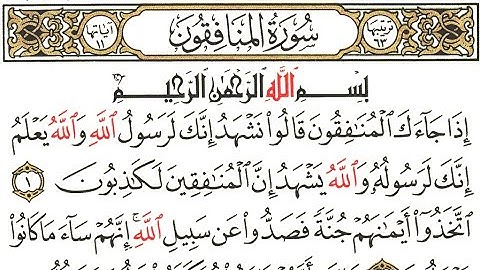 ترتيبها ٦٣ سورة المنافقون آياتها ١١
بِسْمِ ٱللَّهِ ٱلرَّحْمَٰنِ ٱلرَّحِيمِ
إِذَا جَآءَكَ ٱلْمُنَٰفِقُونَ قَالُوا۟ نَشْهَدُ إِنَّكَ لَرَسُولُ ٱللَّهِ وَٱللَّهُ يَعْلَمُ
إِنَّكَ لَرَسُولُهُۥ وَٱللَّهُ يَشْهَدُ إِنَّ ٱلْمُنَٰفِقِينَ لَكَٰذِبُونَ ١
ٱتَّخَذُوٓا۟ أَيْمَٰنَهُمْ جُنَّةً فَصَدُّوا۟ عَن سَبِيلِ ٱللَّهِ ۚ إِنَّهُمْ سَآءَ مَا كَانُوا۟